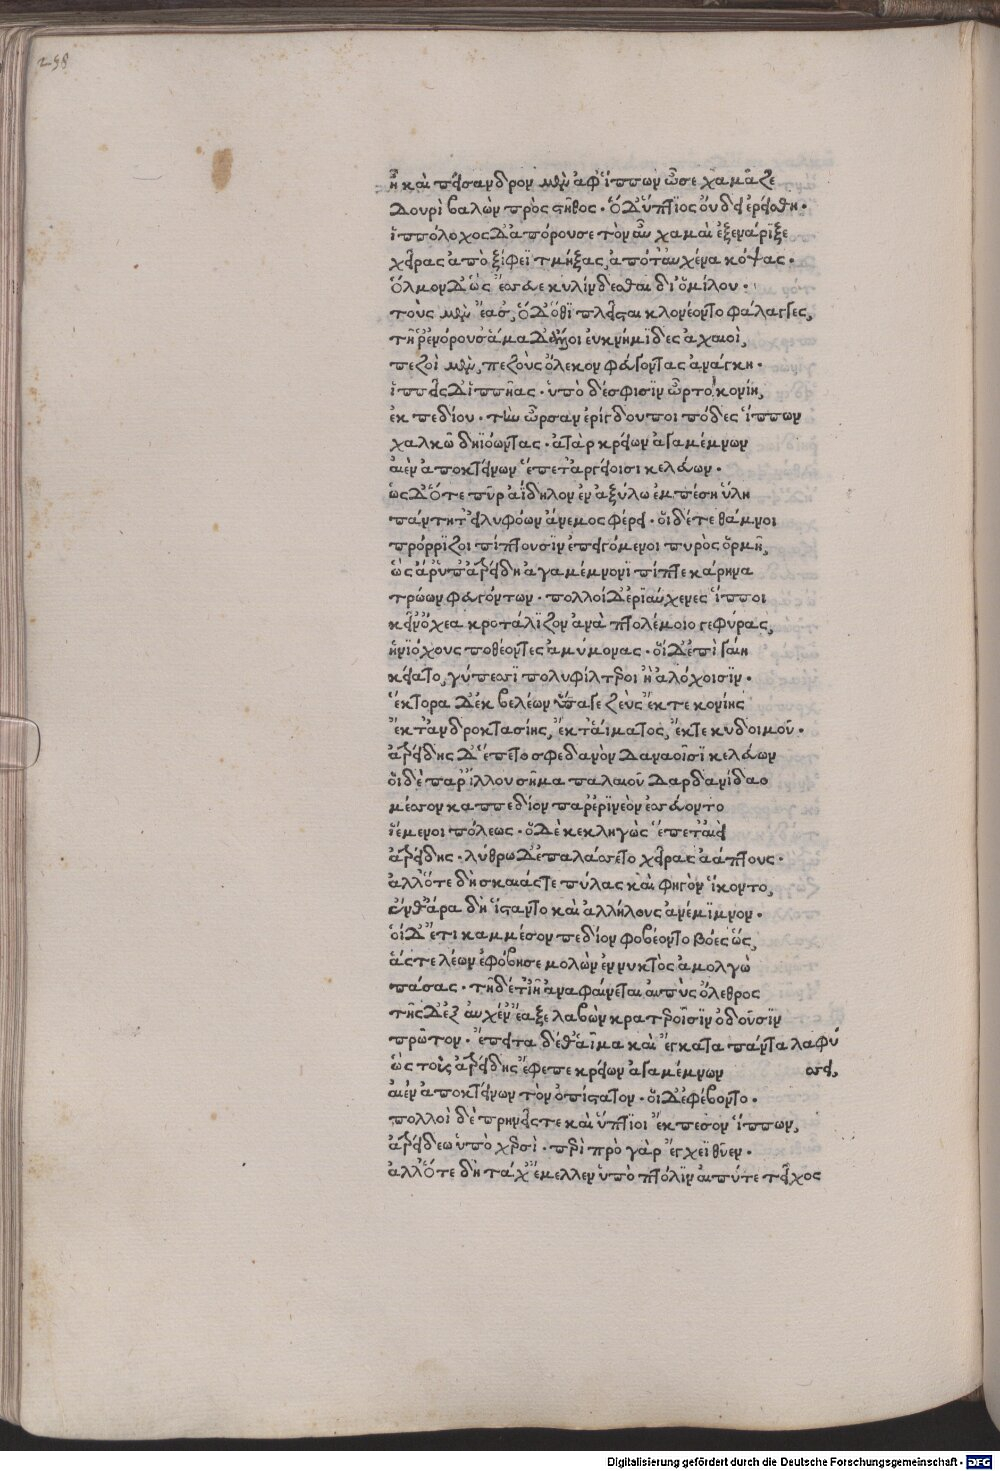 258
ἦ καὶ πείσανδρον μὲν ἀφ' ἵππων ὦσε χαμᾶζε
Δουρὶ βαλὼν πρὸς στῆθος· ὁ δ' ὕπτιος οὔνδει ἐρείσθη·
ἱππόλοχος δ' ἀπόρουσε τὸν αὖ χαμαὶ ἐξενάριξε
χεῖρας ἀπὸ ξίφεϊ τμήξας, ἀπό τ' αὐχένα κόψας·
ὅλμον δ' ὣς ἔσσευε κυλίνδεσθαι δι' ὁμίλου·
τοὺς μὲν ἔασ', ὁ δ' ὅθι πλεῖσται κλονέοντο φάλαγγες,
τῆ ῥ' ἐνόρουσ' ἅμα δ' ἄλλοι ἐυκνήμιδες ἀχαιοὶ,
πεζοὶ μὲν, πεζοὺς ὄλεκον φεύγοντας ἀνάγκη·
ἱππεῖς δ' ἱππῆας· ὑπὸ δέ σφισιν ὦρτο κονίη,
ἐκ πεδίου· τὴν ὦρσαν ἐρίγδουποι πόδες ἵππων
χαλκῶ δηϊόωντας· ἀτὰρ κρείων ἀγαμέμνων
αἰὲν ἀποκτείνων ἕπετ' ἀργείοισι κελεύων·
ὡς δ' ὅτε πῦρ ἀΐδηλον ἐν ἀξύλω ἐμπέση ὕλη
πάντη τ' εἰλυφόων ἄνεμος φέρει· οἱ δέ τε θάμνοι
πρόρριζοι πίπτουσιν ἐπειγόμενοι πυρὸς ὁρμῆ,
ὣς ἄρ' ὑπ' ἀτρείδη ἀγαμέμνονι πίπτε κάρηνα
τρώων φευγόντων· πολλοὶ δ' ἐριαύχενες ἵπποι
κείν' ὄχεα κροτάλιζον ἀνὰ πτολέμοιο γεφύρας,
ἡνιόχους ποθέοντες ἀμύμονας· οἱ δ' ἐπὶ γαίη
κείατο, γύπεσσι πολυφίλτεροι ἢ ἀλόχοισιν·
Ἕκτορα δ' ἐκ βελέων ὕπαγε ζεὺς ἔκ τε κονίης
ἔκ τ' ἀνδροκτασίης, ἔκ θ' αἵματος, ἔκ τε κυδοιμοῦ·
ἀτρείδης δ' ἕπετο σφεδανὸν δαναοῖσι κελεύων
οἱ δὲ παρ' ἴλλου σῆμα παλαιοῦ δαρδανίδαο
μέσσον καππεδίον παρ' ἐρινεὸν ἐσσεύοντο
ἱέμενοι πόλεως· ὁ δὲ κεκληγὼς ἕπετ' αἰεὶ
ἀτρείδης· λύθρω δὲ παλάσσετο χεῖρας ἀάπτους·
ἀλλ' ὅτε δὴ σκαιάς τε πύλας καὶ φηγὸν ἵκοντο,
ἔνθ' ἄρα δὴ ἵσταντο καὶ ἀλλήλους ἀνέμιμνον·
οἱ δ' ἔτι καμμέσον πεδίον φοβέοντο βόες ὣς,
ἅς τε λέων ἐφόβησε μολὼν ἐν νυκτὸς ἀμολγῶ
πάσας· τῆ δέ τ' ἰῆ ἀναφαίνεται αἰπὺς ὄλεθρος
τῆς δ' ἐξ αὐχέν' ἔαξε λαβὼν κρατεροῖσιν ὀδοῦσιν
πρῶτον· ἔπειτα δέ θ' αἷμα καὶ ἔγκατα πάντα λαφύ
σσει,
ὣς τοὺς ἀτρείδης ἔφεπε κρείων ἀγαμέμνων
αἰὲν ἀποκτείνων τὸν ὀπίστατον· οἱ δ' ἐφέβοντο·
πολλοὶ δὲ πρηνεῖς τε καὶ ὕπτιοι ἔκπεσον ἵππων,
ἀτρείδεω ὑπὸ χερσὶ· περὶ πρὸ γὰρ ἔγχεϊ θῦεν·
ἀλλ' ὅτε δὴ τάχ' ἔμελλεν ὑπὸ πτόλιν αἰπύ τε τεῖχος
Digitalisierung gefördert durch die Deutsche Forschungsgemeinschaft - DFG